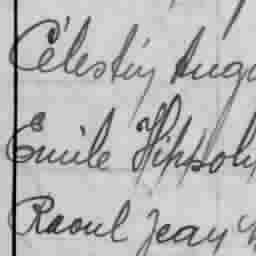 Célestin Aug
Emile Hippoly
Raoul Jean